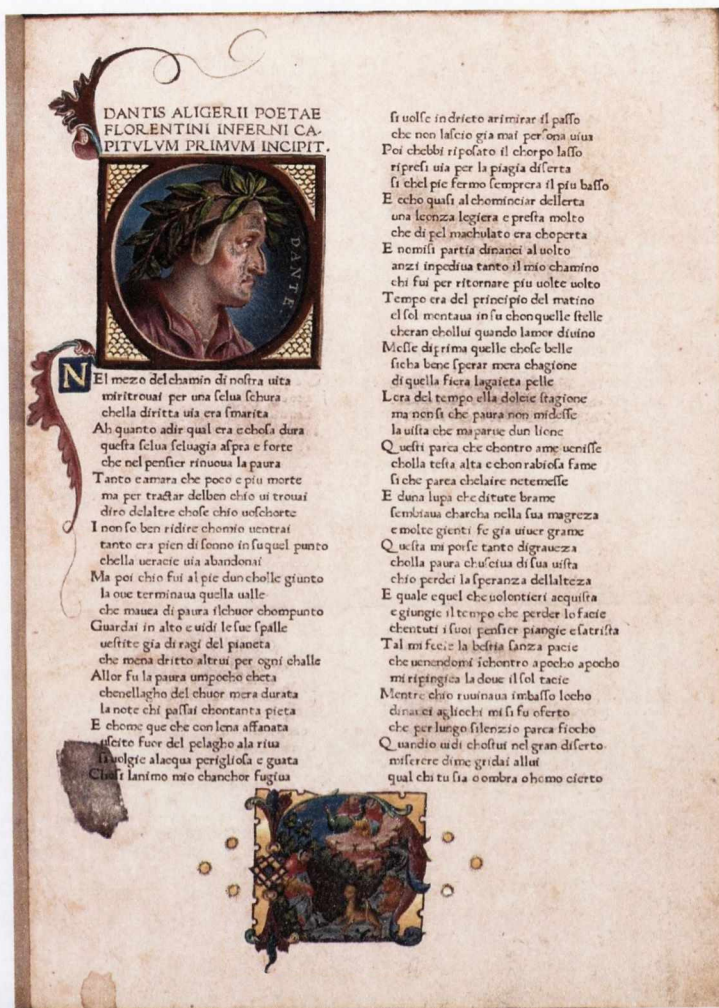 DANTIS ALIGERII POETAE
FLORENTINI INFERNI CA-
PITVLVM PRIMVM INCIPIT.
DANTE.
NEl mezo delchamin di noſtra uita
miritrouai per una ſelua ſchura
chella diritta uia era ſmarita
Ah quanto adir qual era echoſa dura
queſta ſelua ſeluagia aſpra e forte
che nel penſier rinuoua la paura
Tanto eamara che poco e piu morte
ma per tractar delben chio ui trouai
diro delaltre choſe chio uoſchorte
I non ſo ben ridire chomio uentrai
tanto era pien di ſonno in ſuquel punto
chella ueracie uia abandonai
Ma poi chio fui al pie dun cholle giunto
la oue terminaua quella ualle
che mauea di paura ilchuor chompunto
Guardai in alto e uidi le ſue ſpalle
ueſtite gia di ragi del pianeta
che mena dritto altrui per ogni challe
Allor fu la paura umpocho cheta
chenellagho del chuor mera durata
la note chi paſſai chontanta pieta
E chome que che con lena affanata
uſcito fuor del pelagho ala riua
ſi uolgie alacqua perigliosa e guata
Choſi lanimo mio chanchor fugiua
ſi uolſe indrieto arimirar il paſſo
che non laſcio gia mai perſona uiua
Poi chebbi ripoſato il chorpo laſſo
ripreſi uia per la piagia diſerta
ſi chel pie fermo ſemprera il piu baſſo
E echo quaſi al chominciar dellerta
una leonza legiera e preſta molto
che di pel machulato era choperta
E nomiſi partia dinanci al uolto
anzi inpediua tanto il mio chamino
chi fui per ritornare piu uolte uolto
Tempo era del principio del matino
el ſol montaua in ſu chonquelle ſtelle
cheran chollui quando lamor diuino
Moſſe diprima quelle choſe belle
ſicha bene ſperar mera chagione
di quella fiera lagaieta pelle
Lora del tempo ella dolcie ſtagione
ma non ſi che paura non mideſſe
la uiſta che maparue dun lione
Queſti parea che chontro ame ueniſſe
cholla teſta alta e chon rabioſa fame
ſi che parea chelaire netemeſſe
E duna lupa che ditute brame
ſembiaua charcha nella ſua magreza
e molte gienti fe gia uiuer grame
Queſta mi porſe tanto digraueza
cholla paura chuſciua di ſua uiſta
chio perdei la ſperanza dellalteza
E quale e quel che uolontieri acquiſta
e giungie il tempo che perder lo facie
chentuti i ſuoi penſier piangie e ſatriſta
Tal mi fecie la beſtia ſanza pacie
che uenendomi ichontro apocho apocho
mi ripingiea la doue il ſol tacie
Mentre chio ruuinaua imbaſſo locho
dinanci agliochi mi ſi fu oferto
che per lungo ſilenzio parea fiocho
Quandio uidi choſtui nel gran diſerto
miſerere dime gridai allui
qual chi tu ſia o ombra o homo cierto